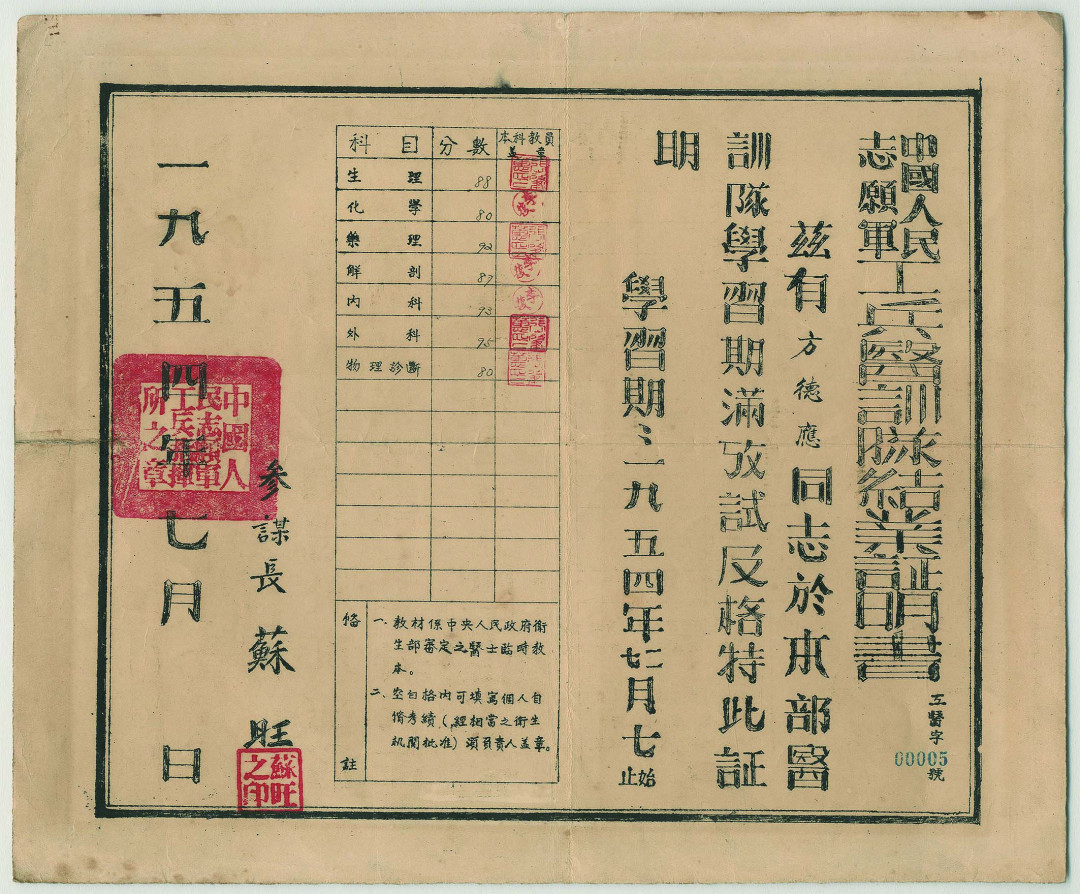 中國人民志願軍工兵醫訓隊結業証明書
工醫字00005號
茲有方德應同志於本部醫
訓隊學習期滿攷試及格特此証
明
學習期：一九五四年二月七始
七止
科目 分數 本科教員蓋章
生理 88
化學 80
藥理 92
解剖 87
內科 93
外科 75
物理診斷 80
備註
一、教材係中央人民政府衛
生部審定之醫士臨時教
本。
二、空白格內可填寫個人自
修考績（經相當之衛生
機関批准）須負責人盖章。
參謀長 蘇旺
蘇旺之印
一九五四年七月 日